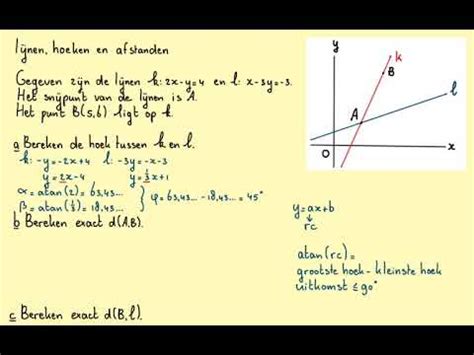 lijnen, hoeken en afstanden
Gegeven zijn de lijnen k: 2x-y=4 en l: x-3y=-3.
Het snijpunt van de lijnen is A.
Het punt B(5,6) ligt op k.
a Bereken de hoek tussen k en l.
k: -y=-2x+4 l: -3y=-x-3
y=2x-4 y=⅓x+1
α=atan(2)=63,43...
β=atan(⅓)=18,43...
φ=63,43... -18,43...=45°
b Bereken exact d(A,B).
c Bereken exact d(B,l).
y
k
B
l
A
O
x
y=ax+b
rc
atan(rc)=
grootste hoek - kleinste hoek
uitkomst ≤90°